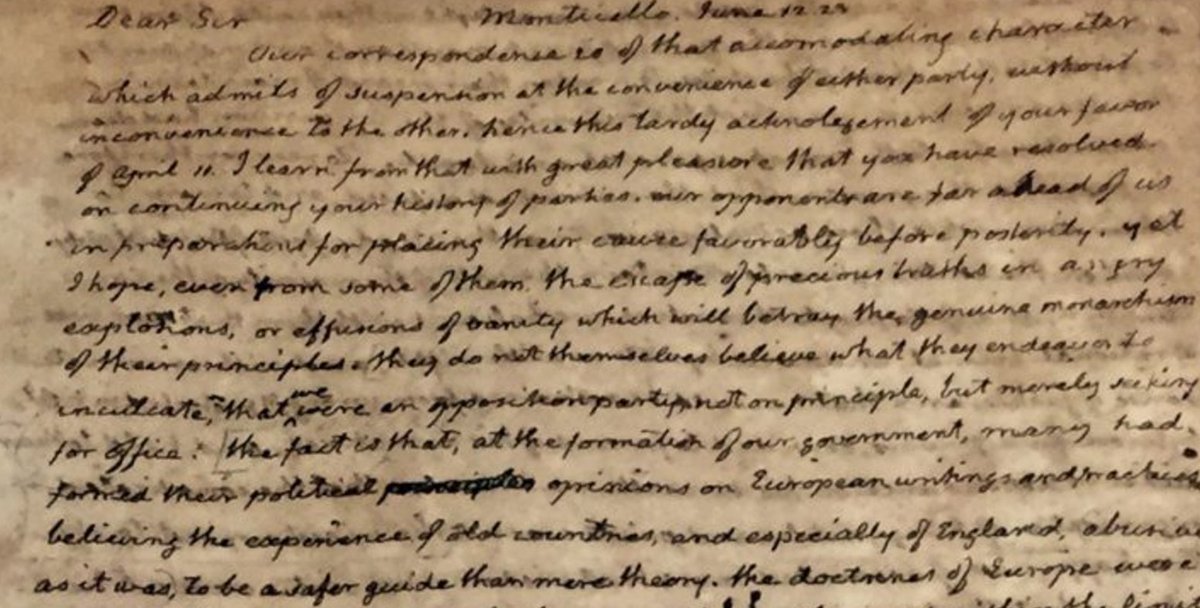 Dear Sir Monticello. June 12. 23
Our correspondence is of that accomodating character
which admits of suspension at the convenience of either party, without
inconvenience to the other. hence this tardy acknolegement of your favor
of April 11. I learn from that with great pleasure that you have resolved
on continuing your history of parties. our opponents are far ahead of us
in preparations for placing their cause favorably before posterity. yet
I hope, even from some of them the escape of precious truths in angry
explosions, or effusions of vanity which will betray the genuine monarchism
of their principles. they do not themselves believe what they endeavor to
inculcate, that we were an opposition party, not on principle, but merely seeking
for office. the fact is that, at the formation of our government, many had
formed their political opinions on European writings and practices
believing the experience of old countries, and especially of England, abusive
as it was, to be a safer guide than mere theory. the doctrines of Europe were